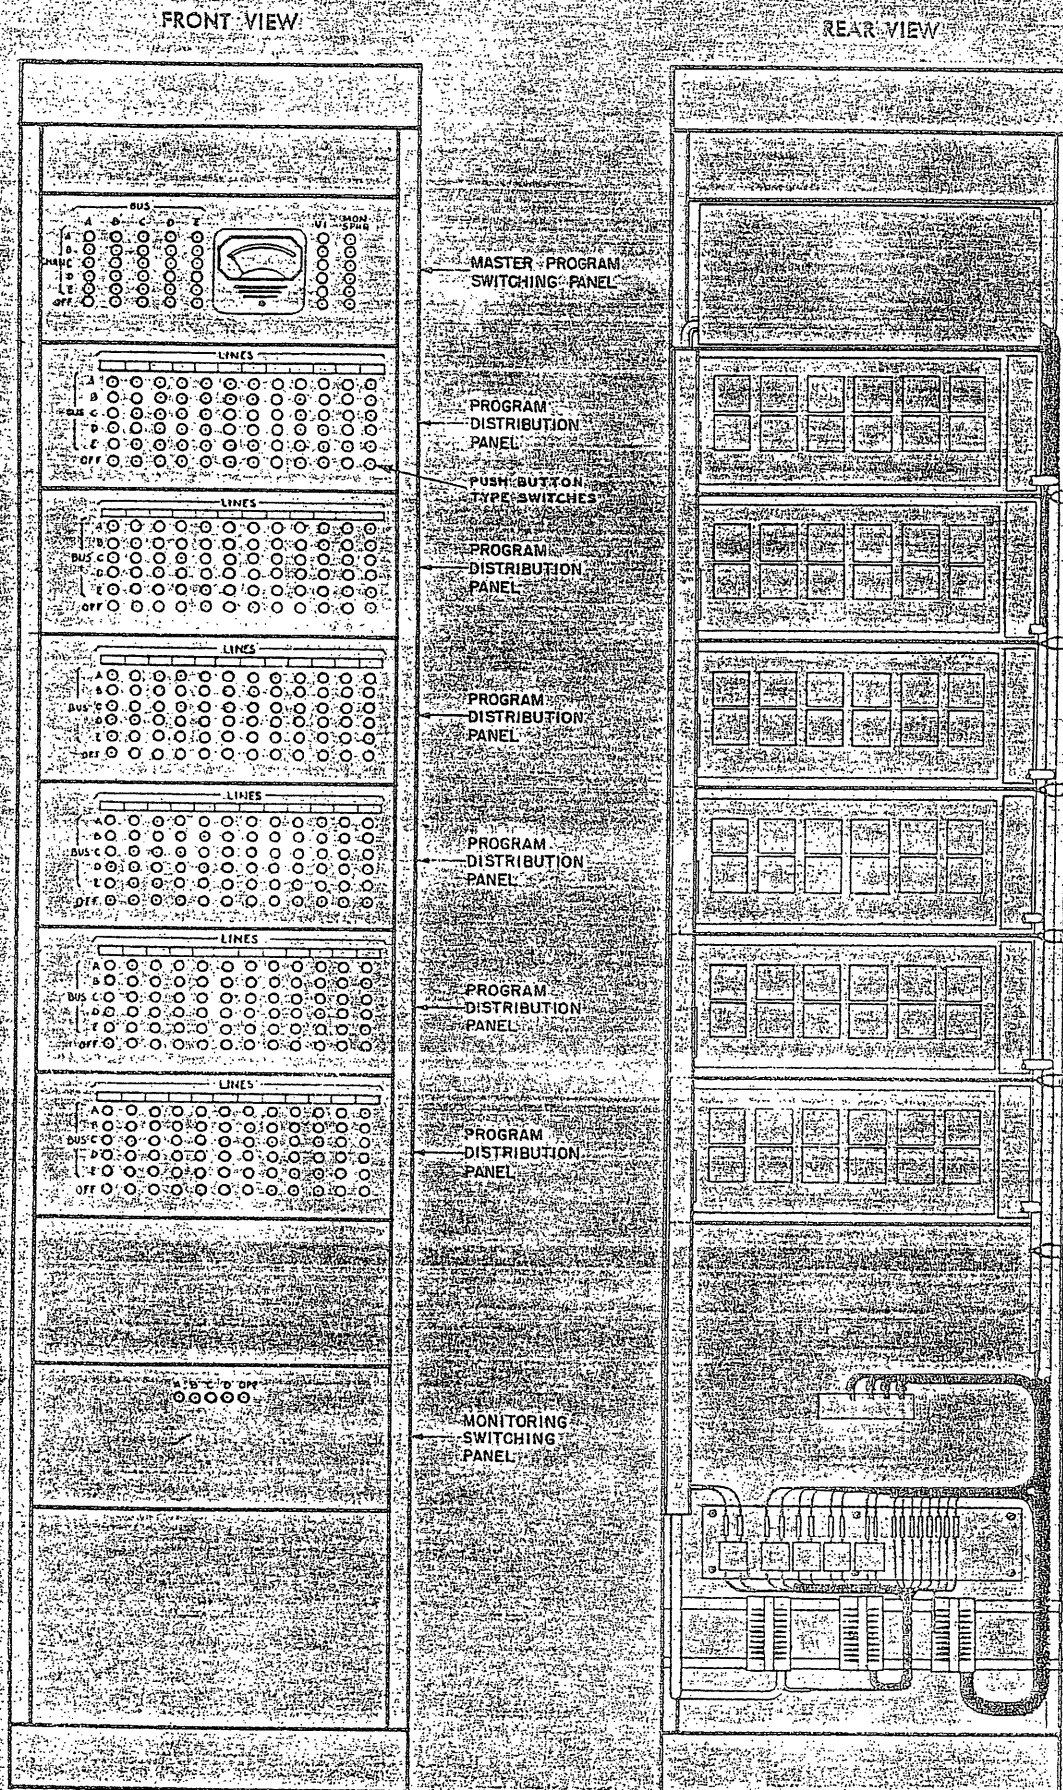 FRONT VIEW
REAR VIEW
BUS
A B C D E
VI
MON
SPKR
A
B
C
D
E
OFF
MASTER PROGRAM
SWITCHING PANEL
LINES
A
B
BUS C
D
E
OFF
PROGRAM
DISTRIBUTION
PANEL
PUSH BUTTON
TYPE SWITCHES
LINES
A
B
BUS C
D
E
OFF
PROGRAM
DISTRIBUTION
PANEL
LINES
A
B
BUS C
D
E
OFF
PROGRAM
DISTRIBUTION
PANEL
LINES
A
B
BUS C
D
E
OFF
PROGRAM
DISTRIBUTION
PANEL
LINES
A
B
BUS C
D
E
OFF
PROGRAM
DISTRIBUTION
PANEL
LINES
A
B
BUS C
D
E
OFF
PROGRAM
DISTRIBUTION
PANEL
A B C D OFF
MONITORING
SWITCHING
PANEL